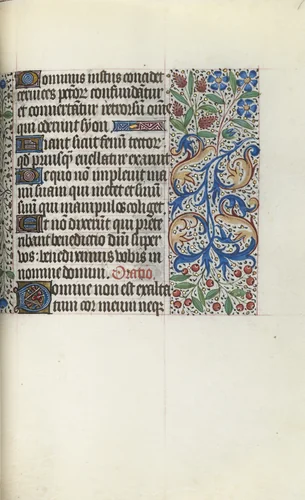 Dominus iustus concidet
cervices peccator̃ confundãtur
et convertãtur retrorsum om̃s
qui oderunt syon
Fiant sicut fenũ tector̃
qd̃ priusq̃ evellatur exaruit
De quo nõ implevit ma
nũ suam qui metet et sinũ
suũ qui manipulos colliget
Et nõ dixerũt qui prete
ribant benedictio dñi super
vos: benediximus vobis in
nomine domini. Oratio.
Domine non est exalta
tum cor meum neq̃